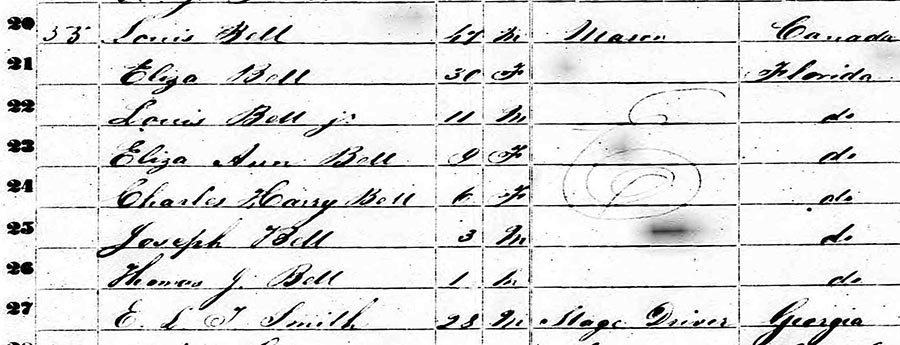 20 55 Louis Bell 47 M Mason Canada
21 Eliza Bell 30 F Florida
22 Louis Bell jr 11 M do
23 Eliza Ann Bell 9 F do
24 Charles Harry Bell 6 F do
25 Joseph Bell 3 M do
26 Thomas J. Bell 1 M do
27 E. L. T. Smith 28 M Stage Driver Georgia